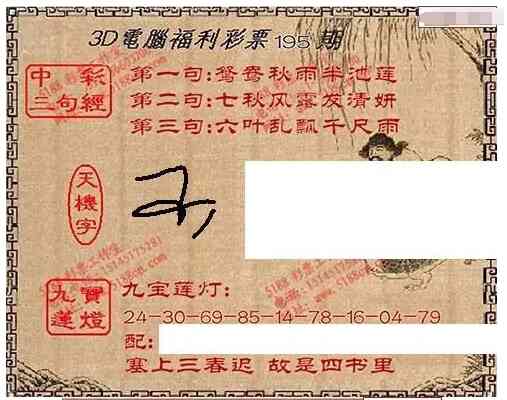 3D電腦福利彩票195期
中彩
三句經
第一句:鴛鸯秋雨半池莲
第二句:七秋风露友清妍
第三句:六叶乱飘千尺雨
天機字
九寶
蓮燈
九宝莲灯:
24-30-69-85-14-78-16-04-79
配:
塞上三春迟 故是四书里